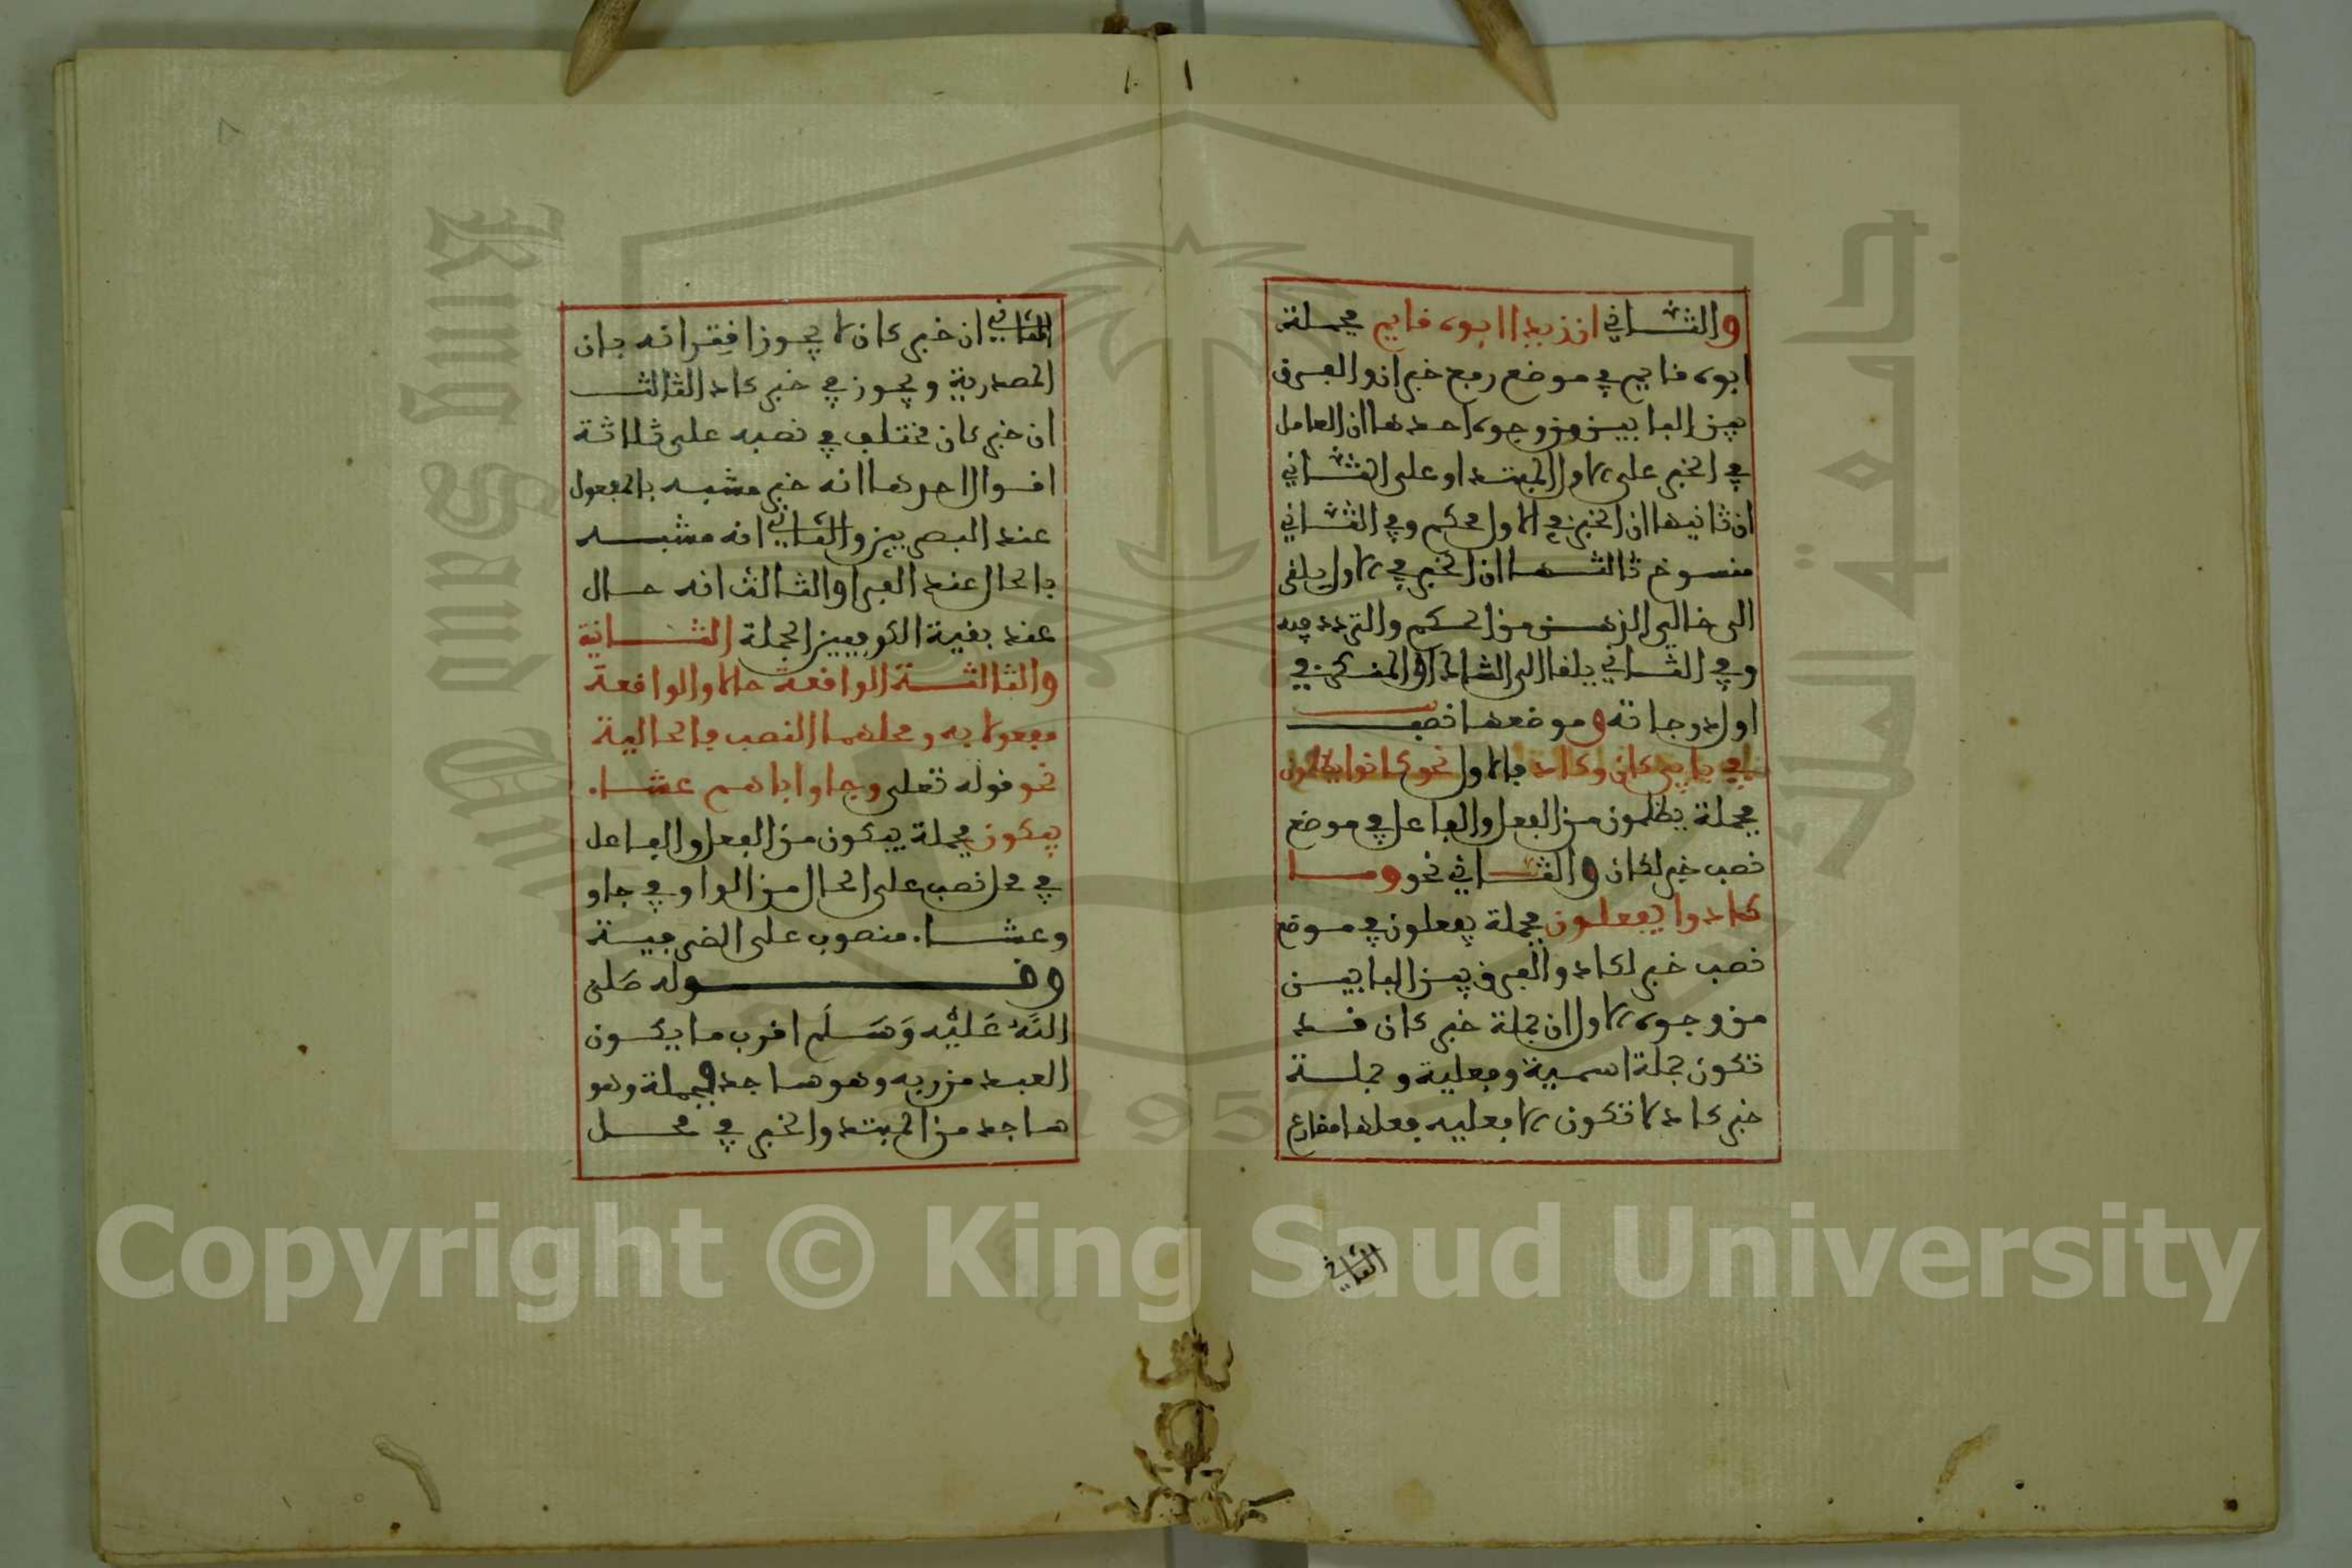 والثاني ان زيدا ابوه قايم فجملة
ابوه قايم في موضع رفع خبر ان والفرق
بين البابين من وجوه احدها ان العامل
في الخبر على الاول المبتدا وعلى الثاني
ان ثانيها ان الخبر في الاول محكم وفي الثاني
منسوخ ثالثها ان الخبر في الاول يلقى
الى خالي الذهن من الحكم والتردد فيه
وفي الثاني يلقا الى الشاك او المنكر في
اول درجاته وموضعها نصب
في بابي كان وكاد فالاول نحو كانوا يظلمون
فجملة يظلمون من الفعل والفاعل في موضع
نصب خبر لكان والثاني نحو وما
كادوا يفعلون فجملة يفعلون في موضع
نصب خبر لكاد والفرق بين البابين
من وجوه الاول ان جملة خبر كان قد
تكون جملة اسمية وفعلية وجملة
خبر كاد لا تكون الا فعليه فعلها مضارع
الثاني
الثاني ان خبر كان لا يجوز اقترانه بان
المصدرية ويجوز في خبر كاد الثالث
ان خبر كان مختلف في نصبه على ثلاثة
اقوال احدها انه خبر مشبه بالمفعول
عند البصريين والثاني انه مشبه
بالحال عند الفرا والثالث انه حال
عند بقية الكوفيين الجملة الثانية
والثالثة الواقعة حالا والواقعة
مفعولا به ومحلهما النصب فالحالية
نحو قوله تعلى وجاو اباهم عشا.
يبكون فجملة يبكون من الفعل والفاعل
في محل نصب على الحال من الواو في جاو
وعشا. منصوب على الضرفية
وقوله صَلى
اللَّهُ عَلَيْه وَسَلَم اقرب ما يكون
العبد من ربه وهو ساجد فجملة وهو
ساجد من المبتدا والخبر في محل
Copyright © King Saud University
King Saud University
جامعة الملك سعود
1957